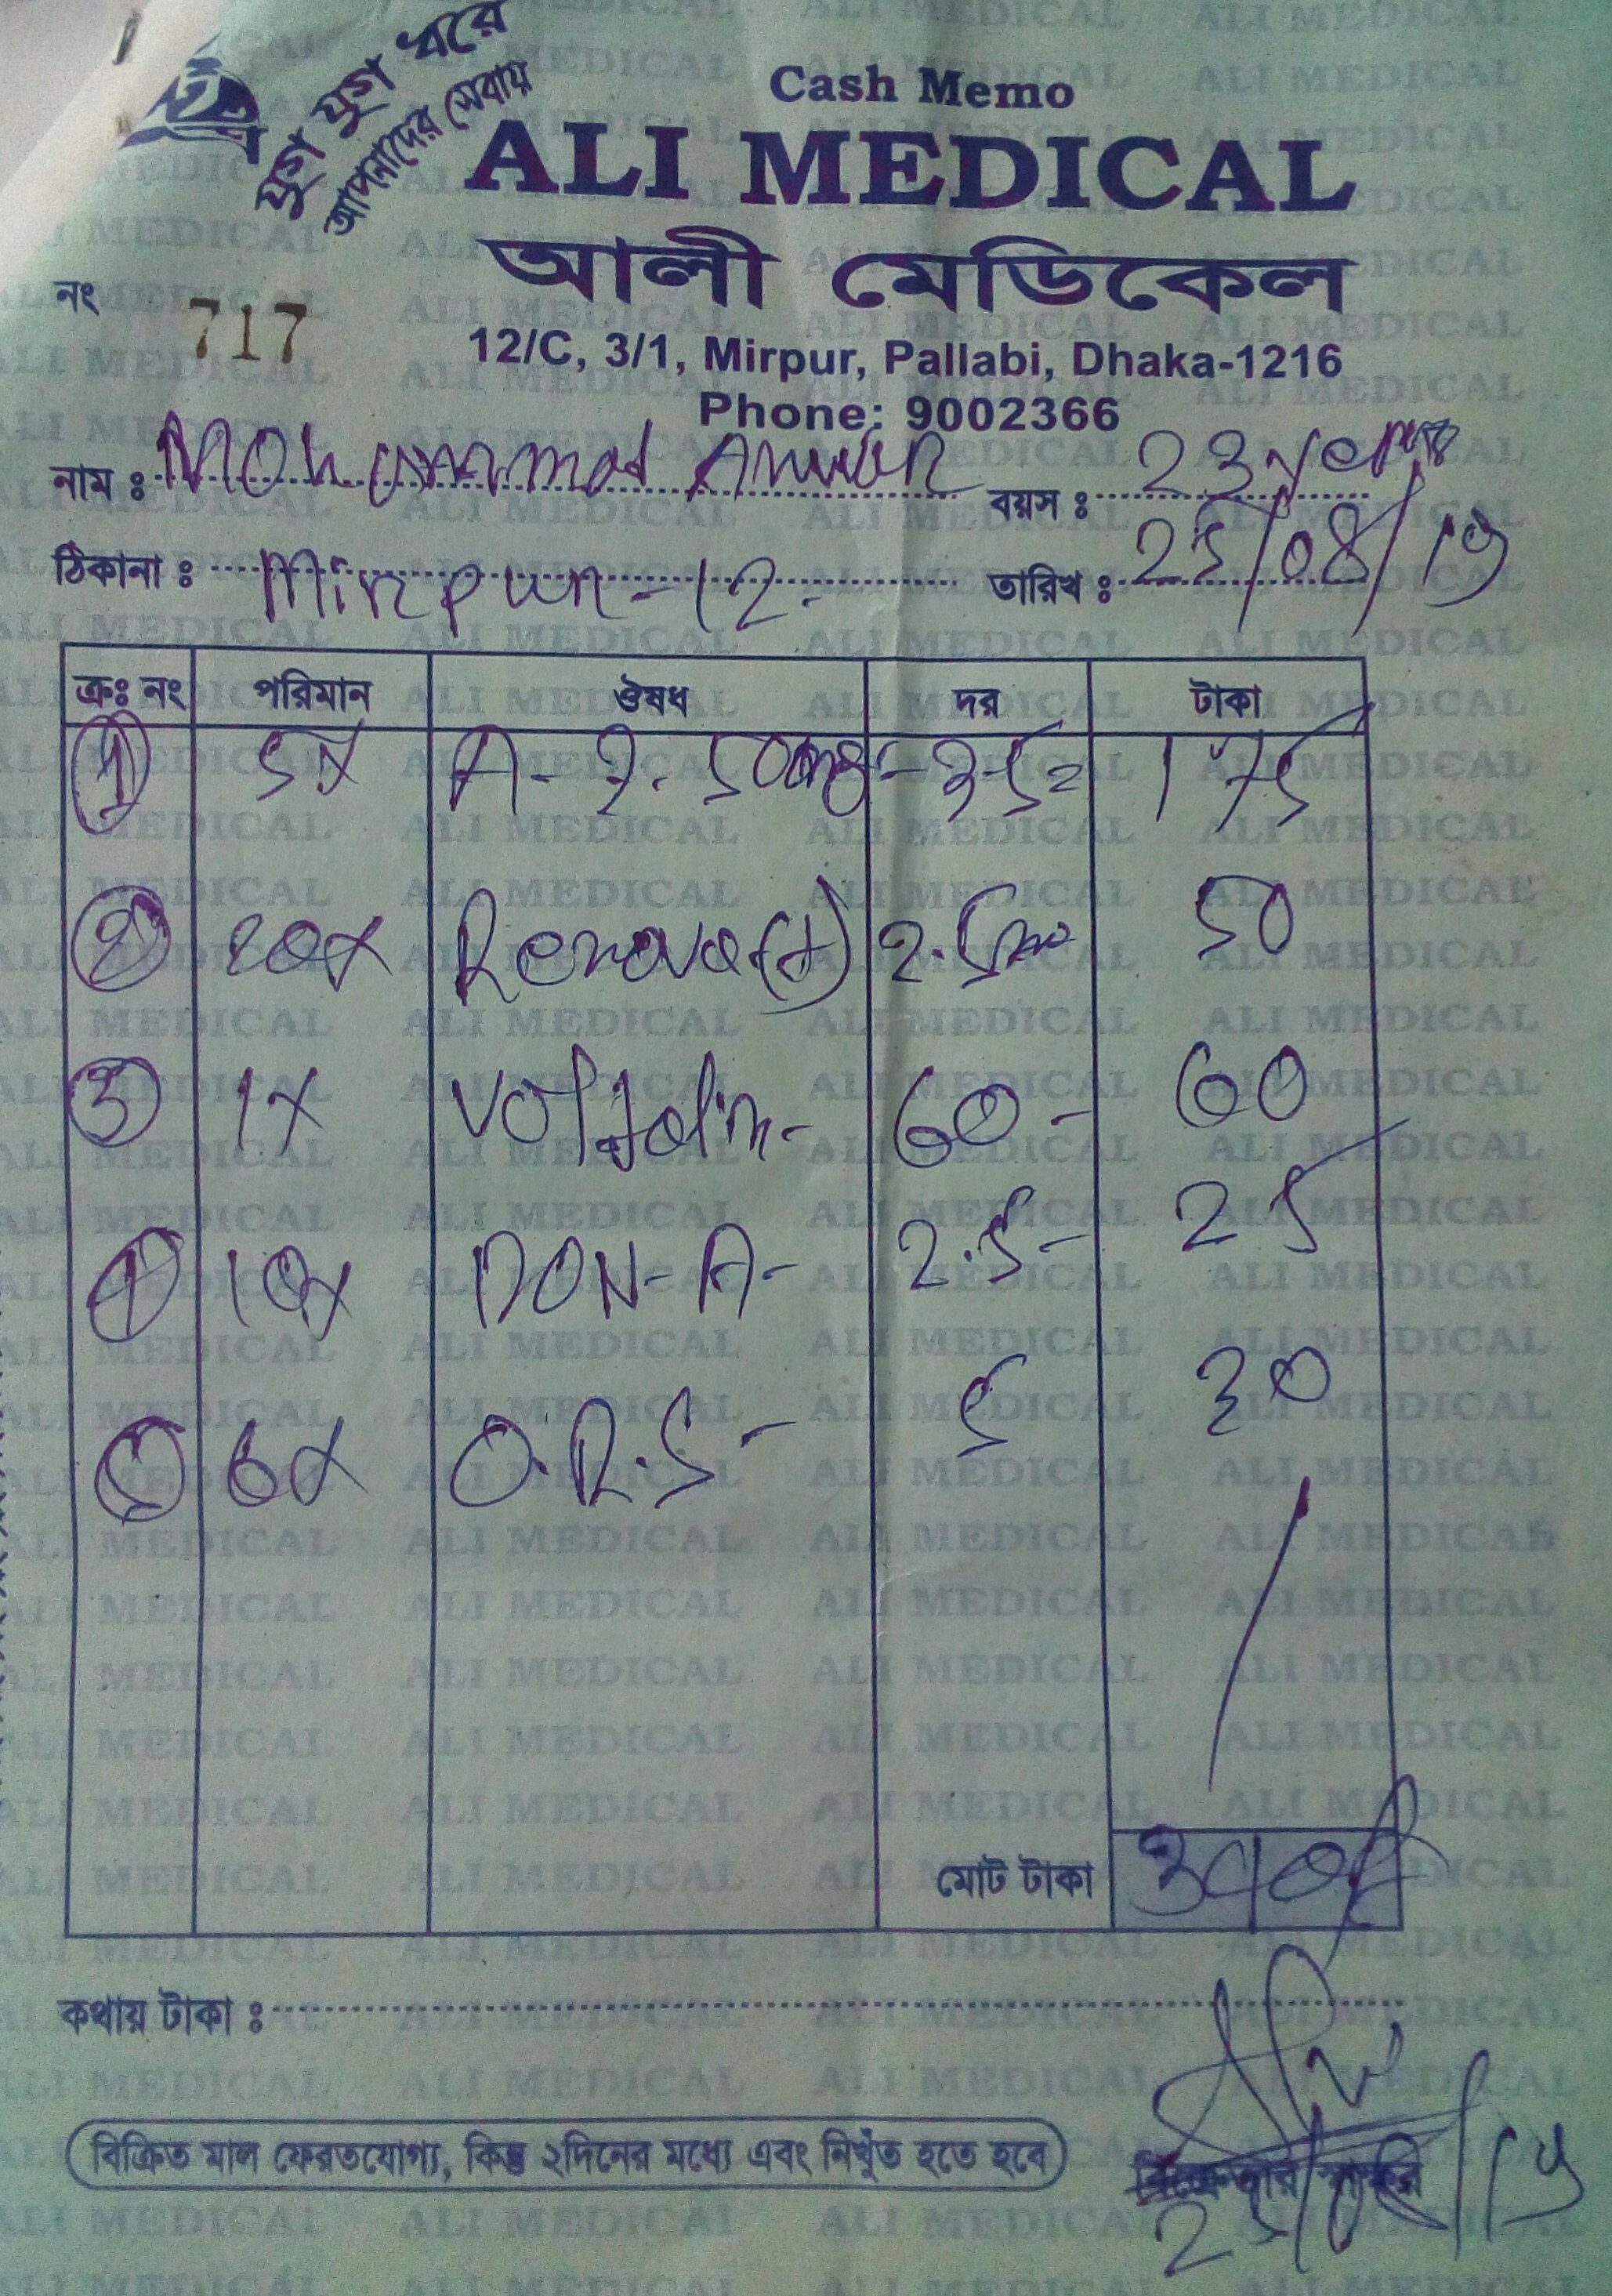 যুগ যুগ ধরে
আপনাদের সেবায়
Cash Memo
ALI MEDICAL
আলী মেডিকেল
নং 717
12/C, 3/1, Mirpur, Pallabi, Dhaka-1216
Phone: 9002366
নাম : Mohammad Anwar বয়স : 23 years
ঠিকানা : Mirpur-12. তারিখ : 25/08/19
ক্রঃ নং পরিমান ঔষধ দর টাকা
১ 5x A-Z. 500mg - 35= 175
২ 20x Renova(+) 2.5 50
৩ 1x Voltalin - 60 - 60
৪ 10x DON-A - 2.5 - 25
৫ 6x O.R.S - 5 30
মোট টাকা ৩৪০/
কথায় টাকা :
বিক্রিত মাল ফেরতযোগ্য, কিন্তু ২দিনের মধ্যে এবং নিখুঁত হতে হবে
বিক্রেতার স্বাক্ষর
25/08/19